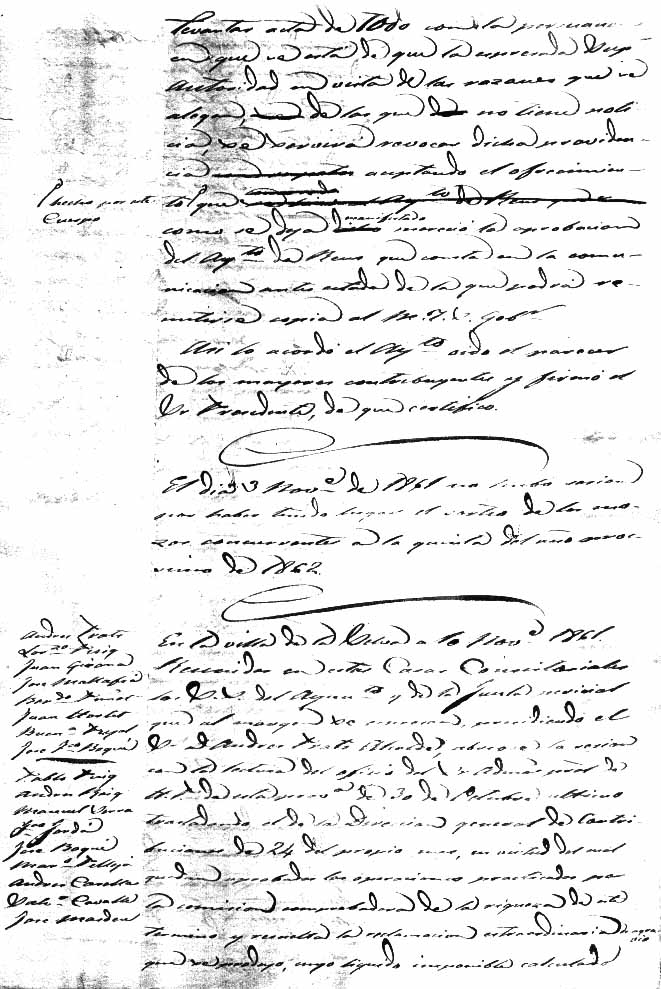 levantar acta de todo con la
en que se está de que la espresada Sup.
Autoridad en vista de las razones que se
alegan, de las que no tiene noti-
cia, se servirá revocar dicha providen-
cia aceptando el ofrecimien-
hecho por este
Cuerpo
to que
manifestado
como se deja mereció la aprobacion
del Ayto de Reus que consta en la comu-
nicacion antes citada de la que podrá re-
mitirse copia al M. I. S. Gobr.
Asi lo acordó el Ayto oido el parecer
de los mayores contribuyentes y firmó el
Sr Presidente, de que certifico.
El dia 3 Nove de 1861 no hubo sesion
por haber tenido lugar el sorteo de los mo-
zos concurrentes a la quinta del año proc-
simo de 1862.
Andres Prats
Lorzo Puig
Juan Girona
Jose Mallafré
Juan
Buena
Jose Fco Boqué
Pablo Puig
Andres Puig
Manuel Serra
Fco Jordá
Jose Boqué
Andres Cavallé
Cavallé
Jose Masdeu
En la villa de la Selva a 10 Nove 1861.
Reunidos en estas Casas Consistoriales
los S.S. del Ayunto y de la Junta pericial
que al margen se espresan, presidiendo el
Sr D. Andres Prats Alcalde, abrese la sesion
con la lectura del oficio del Sr Admor pral de
H.P. de esta prova de 30 de Octubre ultimo
trasladando el de la Direccion general de Contri-
buciones de 24 del propio mes, en virtud del cual
quedan aprobadas las operaciones practicadas por
la comision comprobadora de la riqueza de este
termino y resuelta la reclamacion estraordinaria de agra-
vio
que se produjo, cuyo liquido imponible calculado